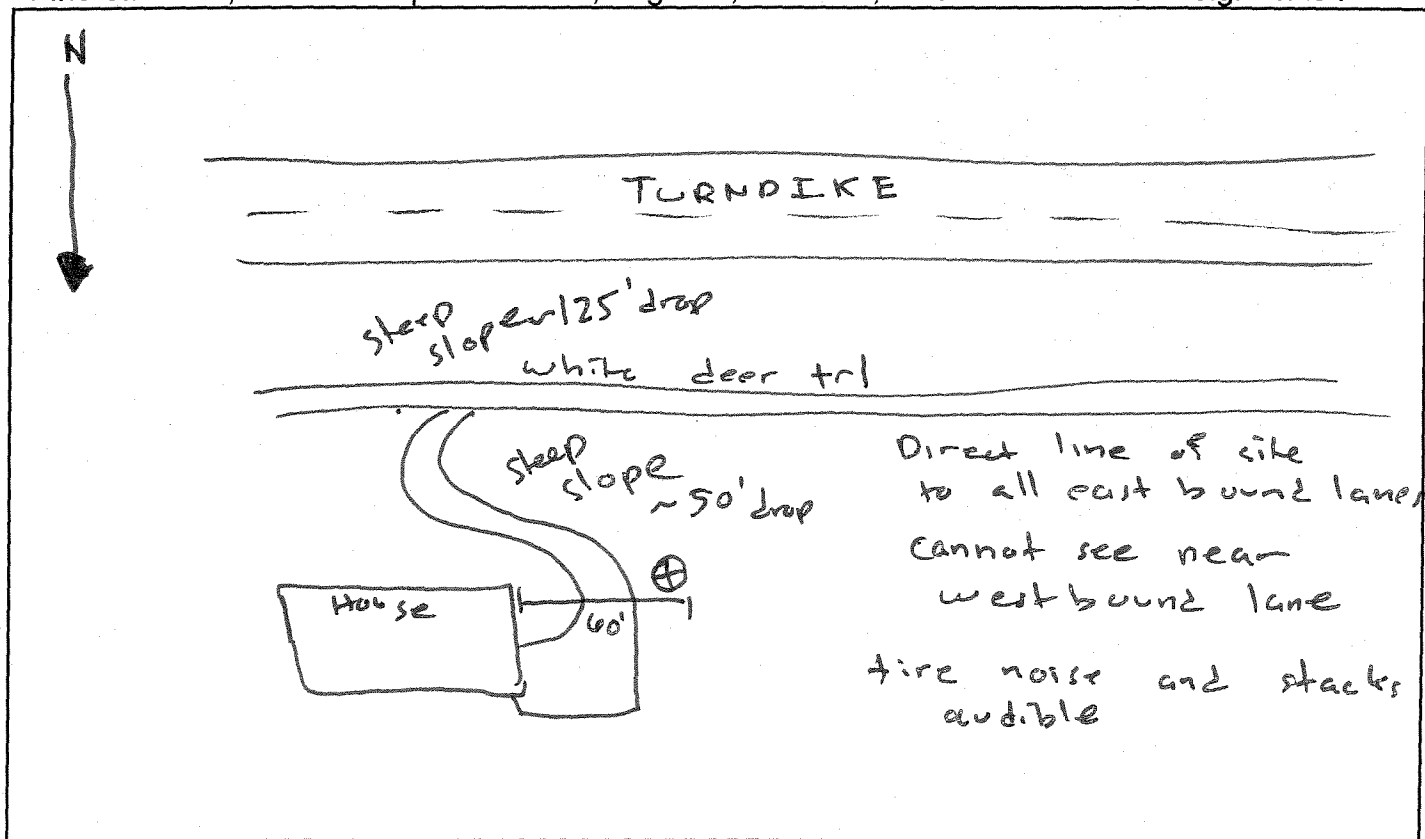 N
TURNPIKE
steep
slope ~125' drop
white deer trl
steep
slope
~50' drop
Direct line of site
to all east bound lanes
cannot see near
westbound lane
House
60'
tire noise and stacks
audible